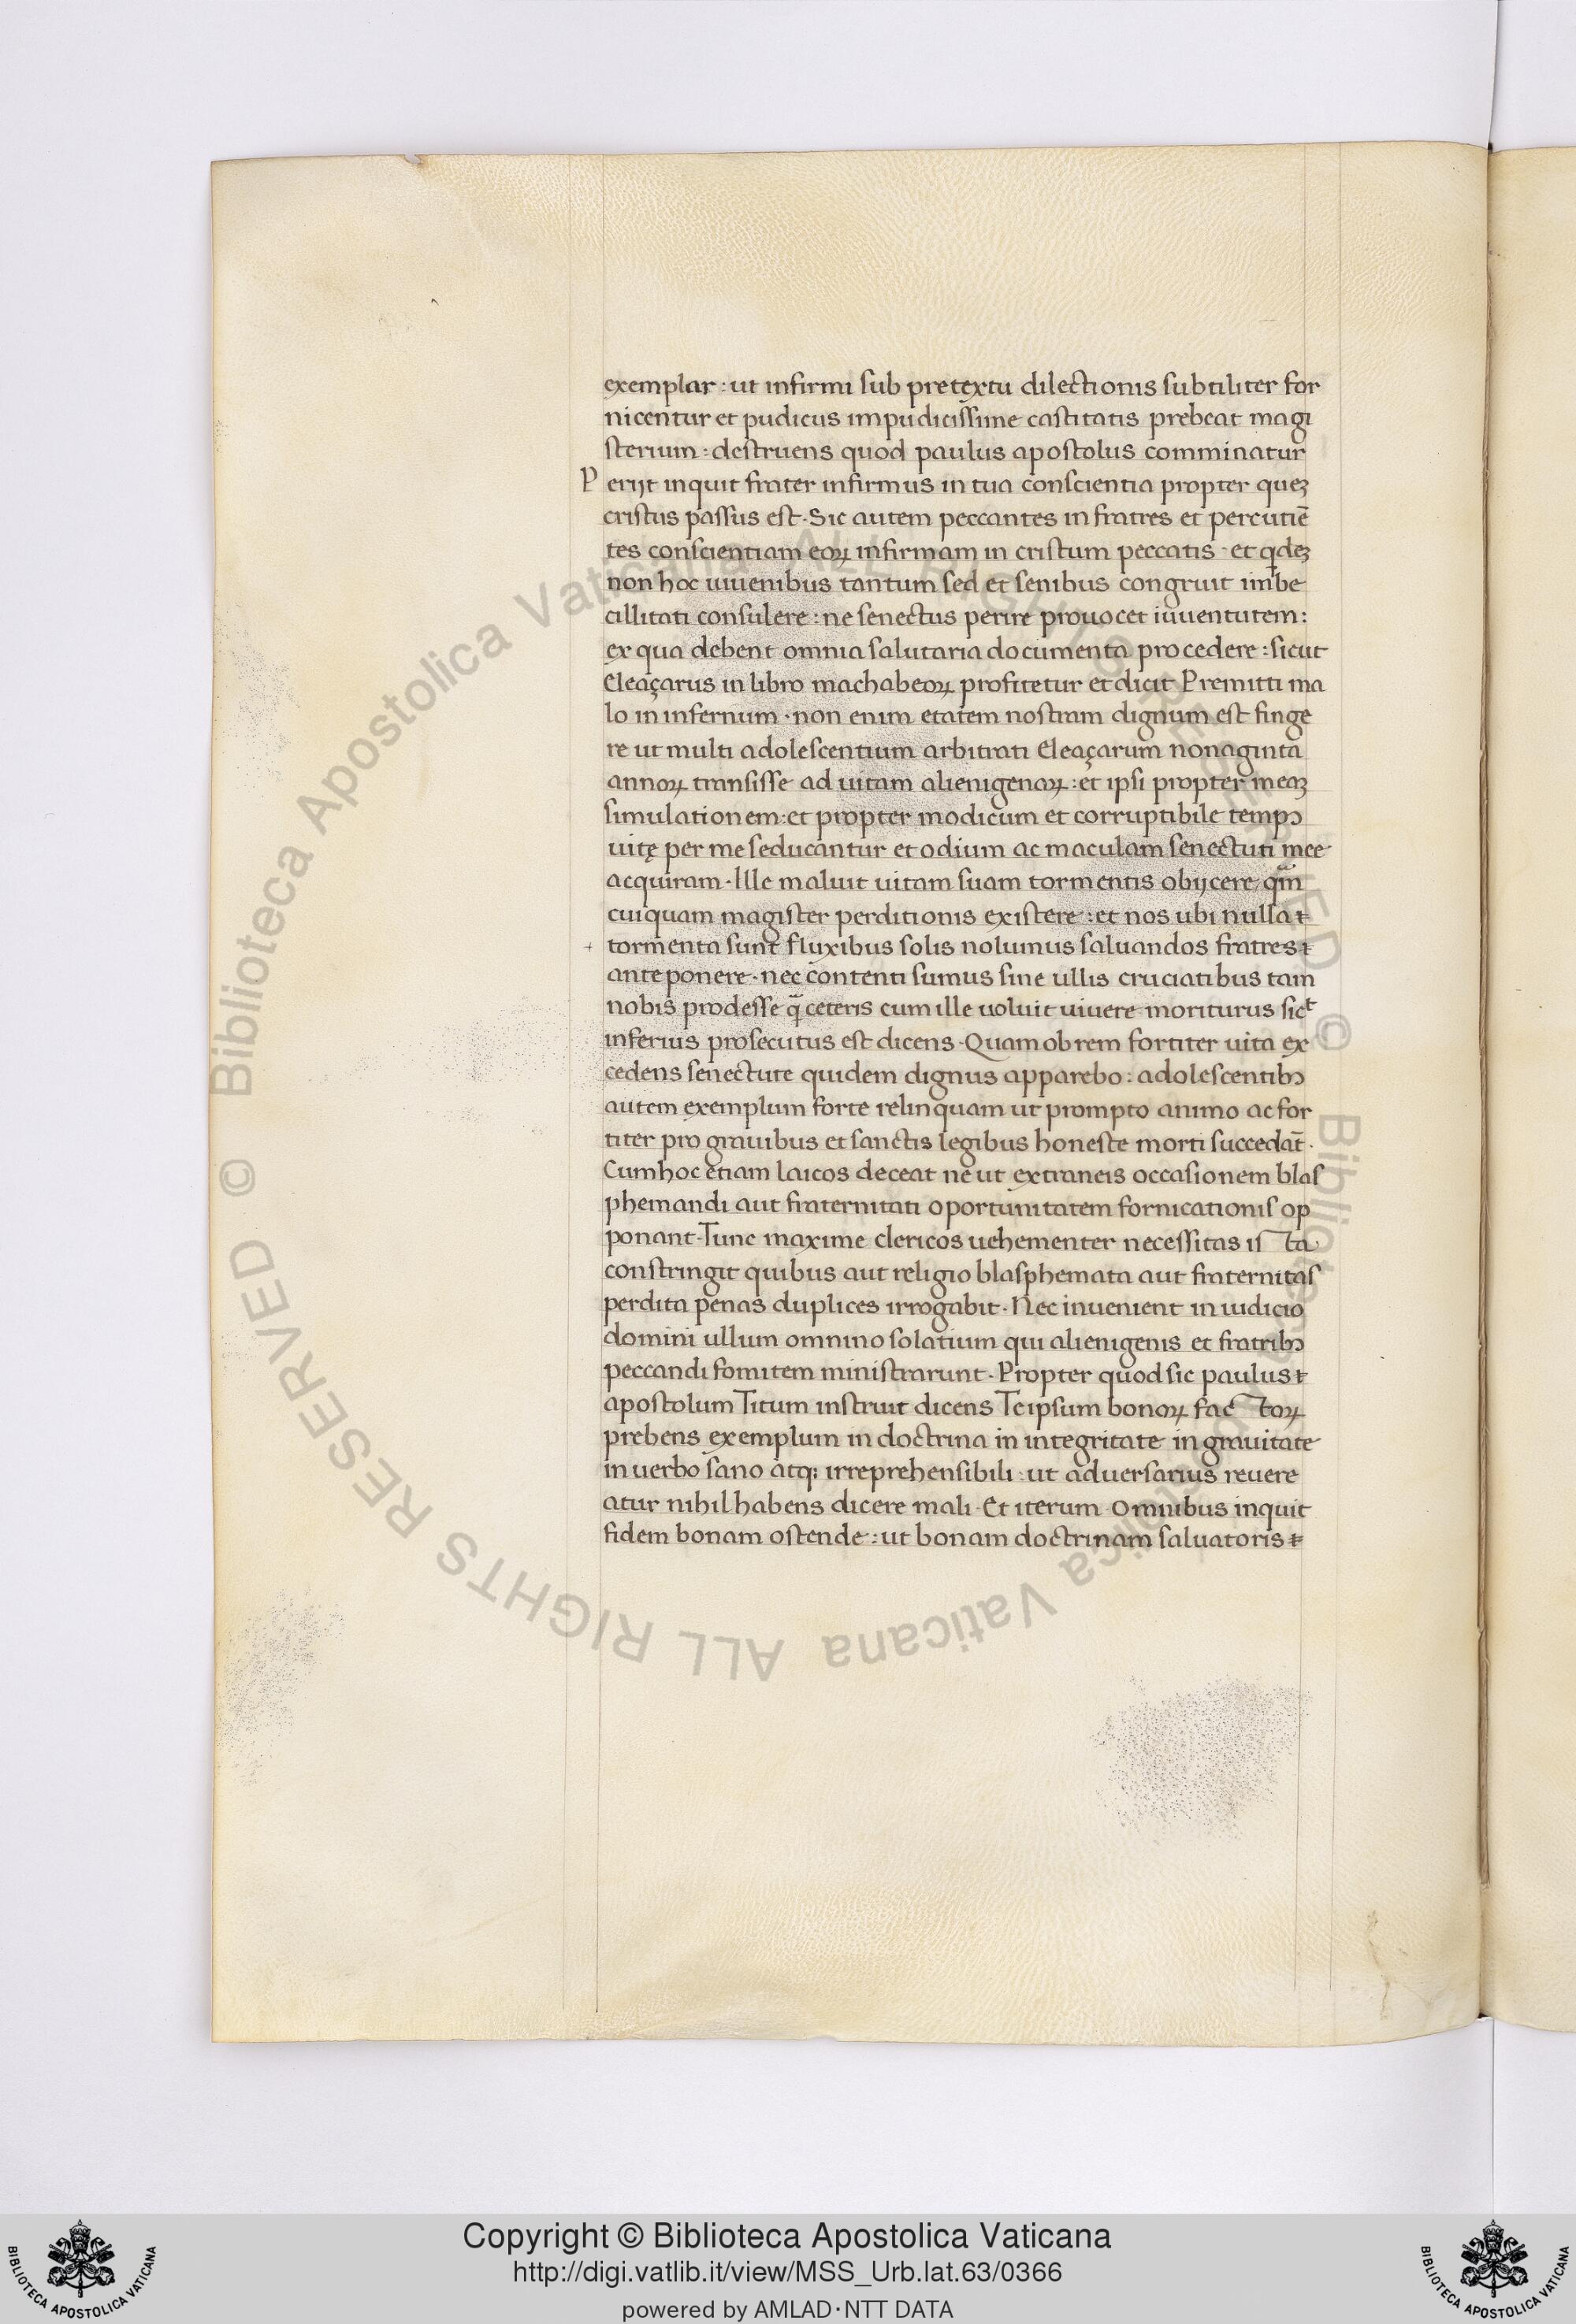 exemplar : ut infirmi sub pretextu dilectionis subtiliter for
nicentur et pudicus impudicissime castitatis prebeat magi
sterium : destruens quod paulus apostolus comminatur
Perijt inquit frater infirmus in tua conscientia propter queꝫ
cristus passus est · Sic autem peccantes in fratres et percutiē
tes conscientiam eoꝝ infirmam in cristum peccatis · et qͥdeꝫ
non hoc iuuenibus tantum sed et senibus congruit imbe
cillitati consulere : ne senectus perire prouocet iuuentutem :
ex qua debent omnia salutaria documenta procedere : sicut
Eleaçarus in libro machabeoꝝ profitetur et dicit Premitti ma
lo in infernum · non enim etatem nostram dignum est finge
re ut multi adolescentium arbitrati Eleaçarum nonaginta
annoꝝ transisse ad uitam alienigenoꝝ : et ipsi propter meaꝫ
simulationem : et propter modicum et corruptibile tempꝯ
uitę per me seducantur et odium ac maculam senectuti mee
acquiram · Ille maluit uitam suam tormentis obijcere / qm̄
cuiquam magister perditionis existere : et nos ubi nulla
tormenta sunt fluxibus solis nolumus saluandos fratres
anteponere · nec contenti sumus sine ullis cruciatibus tam
nobis prodesse q̄ ceteris cum ille uoluit uiuere moriturus sicᵗ
inferius prosecutus est dicens · Quamobrem fortiter uita ex
cedens senectute quidem dignus apparebo : adolescentibꝯ
autem exemplum forte relinquam ut prompto animo ac for
titer pro grauibus et sanctis legibus honeste morti succedat̄ ·
Cum hoc etiam laicos deceat ne ut extraneis occasionem blas
phemandi aut fraternitati oportunitatem fornicationis op
ponant · Tunc maxime clericos uehementer necessitas is ta
constringit quibus aut religio blasphemata aut fraternitas
perdita penas duplices irrogabit · Nec inuenient in iudicio
domini ullum omnino solatium qui alienigenis et fratribꝯ
peccandi fomitem ministrarunt · Propter quod sic paulus
apostolum Titum instruit dicens Teipsum bonoꝝ fac toꝝ
prebens exemplum in doctrina in integritate in grauitate
in uerbo sano atqꝫ irreprehensibili : ut aduersarius reuere
atur nihil habens dicere mali · Et iterum · Omnibus inquit
fidem bonam ostende : ut bonam doctrinam saluatoris
© Biblioteca Apostolica Vaticana ALL RIGHTS RESERVED © Biblioteca Apostolica Vaticana ALL RIGHTS RESERVED
Copyright © Biblioteca Apostolica Vaticana
http://digi.vatlib.it/view/MSS_Urb.lat.63/0366
powered by AMLAD·NTT DATA
BIBLIOTECA APOSTOLICA VATICANA
BIBLIOTECA APOSTOLICA VATICANA